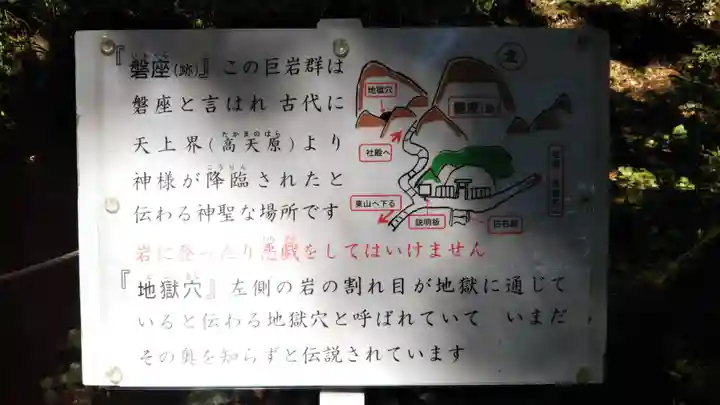 『磐座(跡)』この巨岩群は
磐座と言はれ 古代に
天上界(高天原)より
たかまのはら
神様が降臨されたと
こうりん
伝わる神聖な場所です
岩に登ったり悪戯をしてはいけません
『地獄穴』左側の岩の割れ目が地獄に通じて
いると伝わる地獄穴と呼ばれていて いまだ
その奥を知らずと伝説されています
北
地獄穴
社殿へ
東山へ下る
説明板